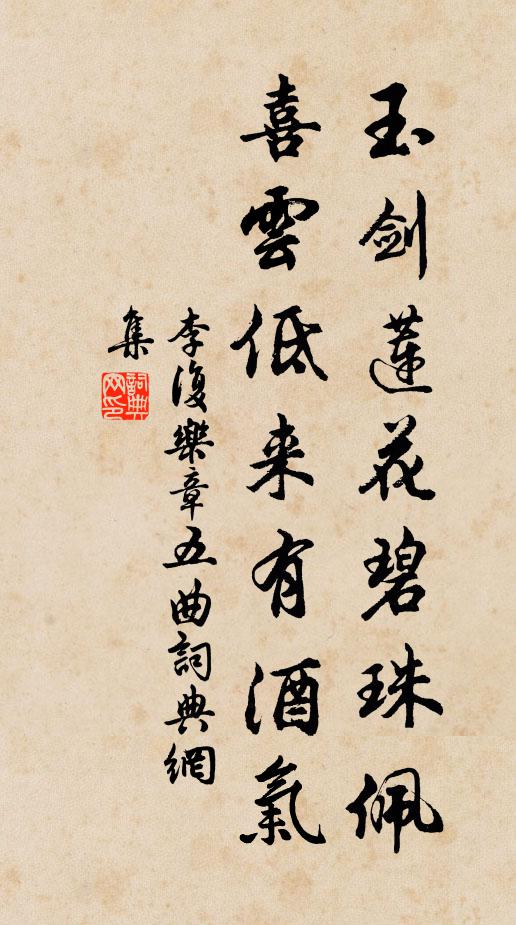 玉剑蓮花碧珠佩
喜雲低来有酒氣
李復樂章五曲詞典網
集
詞典
网印